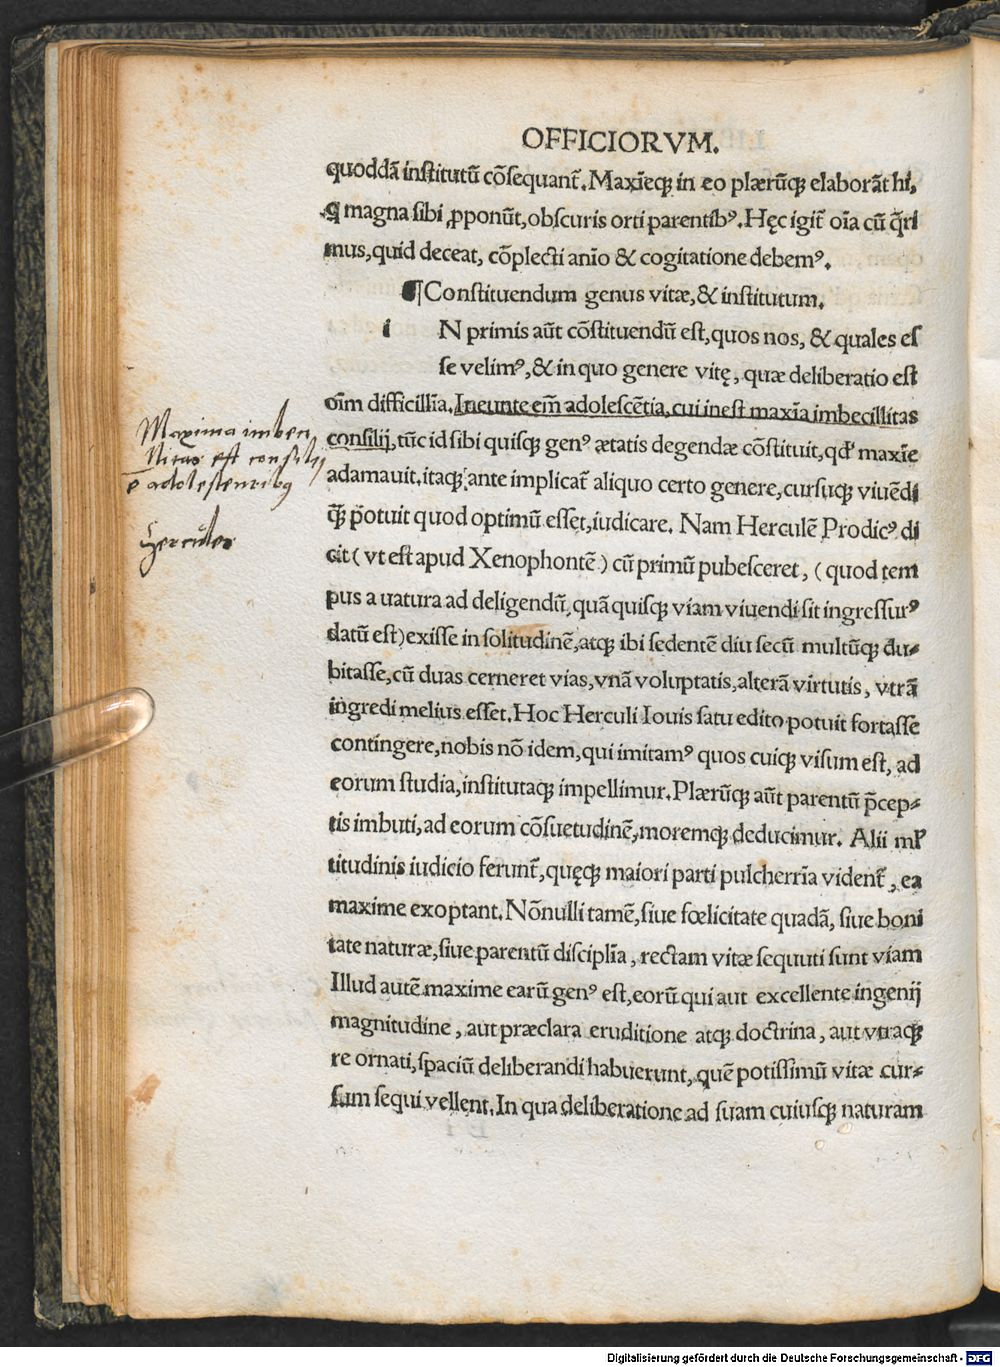 OFFICIORVM.
quoddā institutū cōsequant᷑. Maxīeq; in eo plærūq; elaborāt hi,
q̇ magna sibi ꝓponūt, obscuris orti parentibꝰ. Hęc igit᷑ oīa cū q̄ri
mus, quid deceat, cōplecti anīo & cogitatione debemꝰ.
¶Constituendum genus vitæ, & institutum.
i N primis aūt cōstituendū est, quos nos, & quales es
se velimꝰ, & in quo genere vitę, quæ deliberatio est
oīm difficillīa. Ineunte em̄ adolescētia, cui inest maxīa imbecillitas
consilij, tūc id sibi quisq; genꝰ ætatis degendæ cōstituit, qđ maxīe
adamauit. itaq; ante implicat᷑ aliquo certo genere, cursuq; viuēdi
q̄ꝫ p̄otuit quod optimū esset, iudicare. Nam Herculē Prodicꝰ di
cit (vt est apud Xenophontē) cū primū pubesceret, (quod tem
pus a uatura ad deligendū, quā quisq; viam viuendi sit ingressurꝰ
datū est) exisse in solitudinē, atq; ibi sedentē diu secū multūq; du-
bitasse, cū duas cerneret vias, vnā voluptatis, alterā virtutis, vtrā
ingredi melius esset. Hoc Herculi Iouis satu edito potuit fortasse
contingere, nobis nō idem, qui imitamꝰ quos cuiq; visum est, ad
eorum studia, institutaq; impellimur. Plærūq; aūt parentū p̄cep-
tis imbuti, ad eorum cōsuetudinē, moremq; deducimur. Alii ml̕
titudinis iudicio ferunt᷑, quęq; maiori parti pulcherrīa vident᷑, ea
maxime exoptant. Nōnulli tamē, siue fœlicitate quadā, siue boni
tate naturæ, siue parentū disciplīa, rectam vitæ sequuti sunt viam
Illud autē maxime earū genꝰ est, eorū qui aut excellente ingenij
magnitudine, aut præclara eruditione atq; doctrina, aut vtraq;
re ornati, spaciū deliberandi habuerunt, quē potissimū vitæ cur-
sum sequi vellent. In qua deliberatione ad suam cuiusq; naturam
Maxima imbecil
litas est consilij
adolescentibꝰ
Hercules
Digitalisierung gefördert durch die Deutsche Forschungsgemeinschaft - DFG